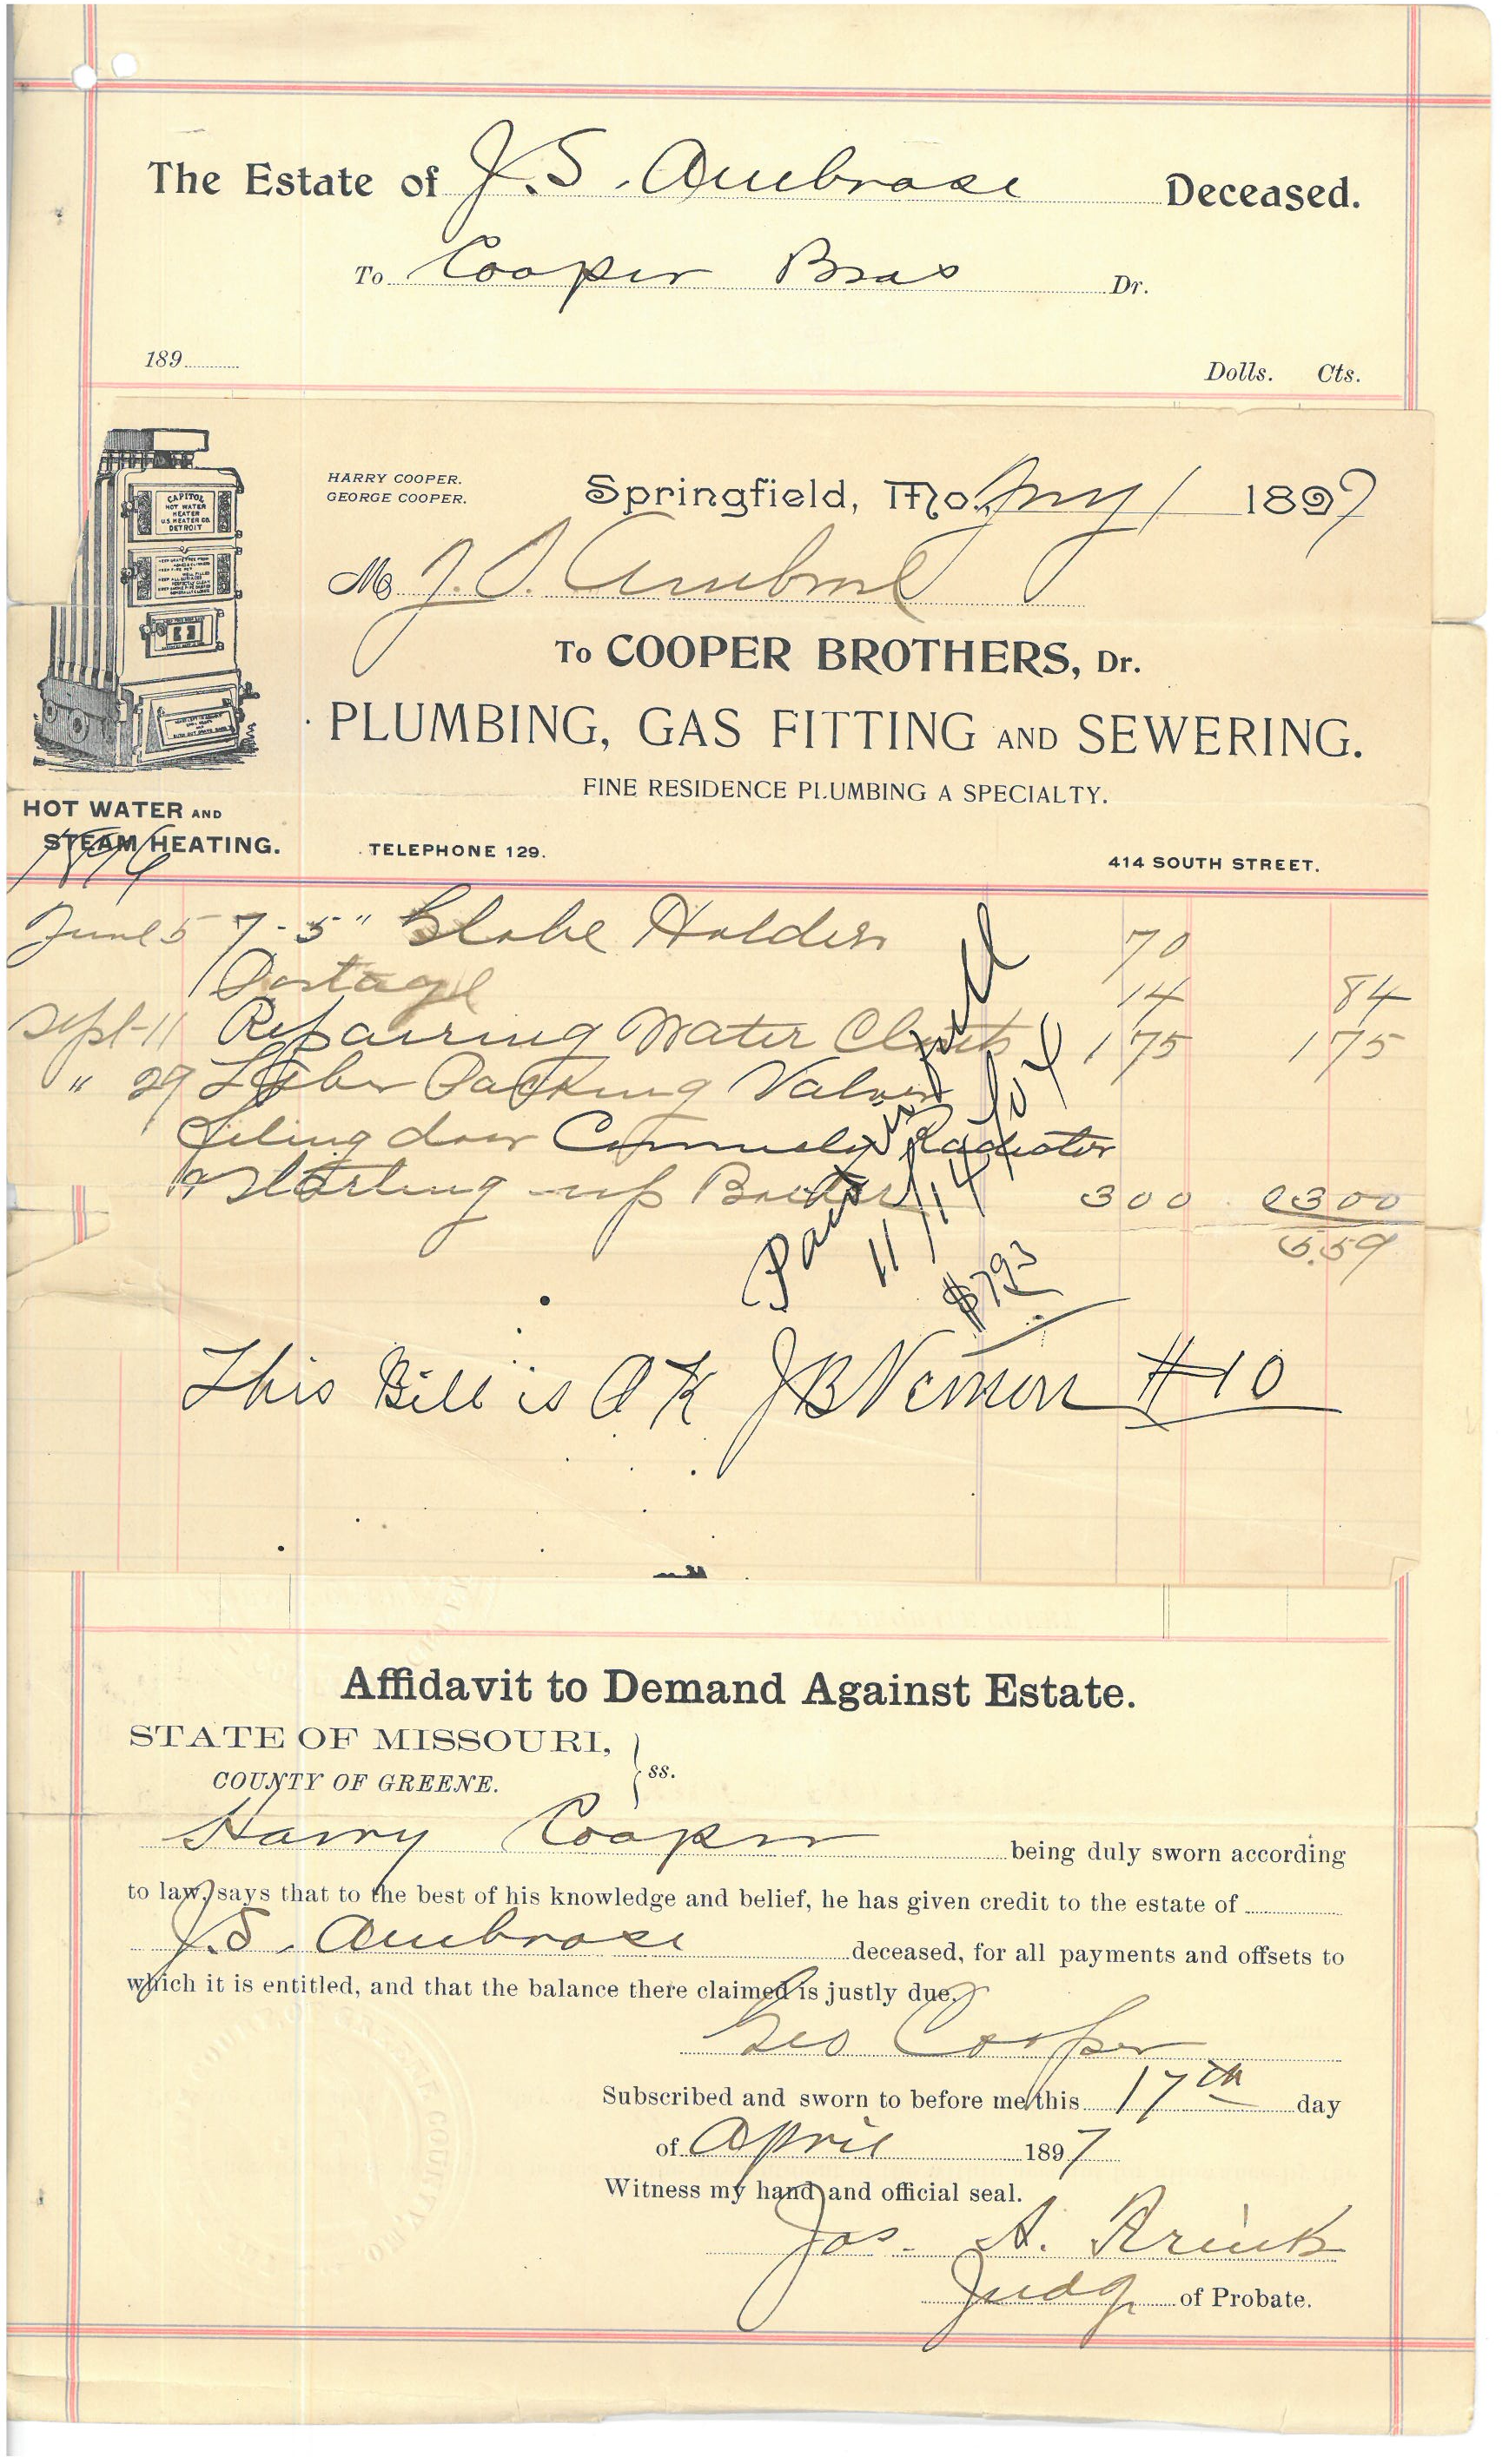 The Estate of J. S. Ambrose Deceased.
To Cooper Bros Dr.
189
Dolls. Cts.
CAPITOL
HOT WATER
HEATER
U.S. HEATER CO.
DETROIT
HARRY COOPER.
GEORGE COOPER.
Springfield, Mo. 1 1897
M J. S. Ambrose
To COOPER BROTHERS, Dr.
PLUMBING, GAS FITTING AND SEWERING.
FINE RESIDENCE PLUMBING A SPECIALTY.
HOT WATER AND
STEAM HEATING.
TELEPHONE 129.
414 SOUTH STREET.
1896
June 5 7-5" Globe Holders 70
Postage 14 84
Sept 11 Repairing Water Closets 1 75 1 75
" 29 Labor Packing Valves
filing door Radiator
Starting up Boiler 3 00 3 00
5.59
Paid in full
11/14
$793
This Bill is O K J B Vernon #10
Affidavit to Demand Against Estate.
STATE OF MISSOURI,
COUNTY OF GREENE. ss.
Harry Cooper being duly sworn according
to law, says that to the best of his knowledge and belief, he has given credit to the estate of
J. S. Ambrose deceased, for all payments and offsets to
which it is entitled, and that the balance there claimed is justly due.
Geo Cooper
Subscribed and sworn to before me this 17th day
of April 1897
Witness my hand and official seal.
Jos. A.
Judge of Probate.